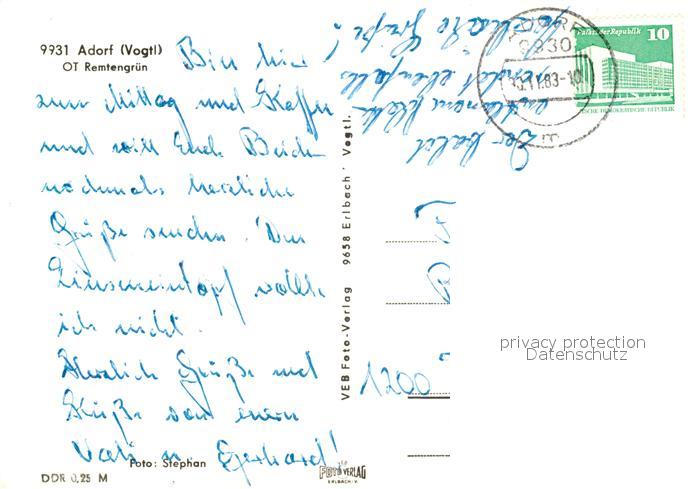 9931 Adorf (Vogtl)
OT Remtengrün
Bin hier
zum Mittag und Kaffee
und will Euch Beiden
nochmals herzliche
Grüße senden. Den
Linseneintopf wollte
ich nicht.
Herzliche Grüße und
Küße von
Vati u. Gerhard!
Foto: Stephan
DDR 0,25 M
VEB Foto-Verlag 9658 Erlbach Vogtl.
FOTO VERLAG
ERLBACH/V.
Der
sendet ebenfalls
herzliche Grüße!
ADORF
9930
15.11.83-10
Palast der Republik 10
DEUTSCHE DEMOKRATISCHE REPUBLIK
1200
privacy protection
Datenschutz